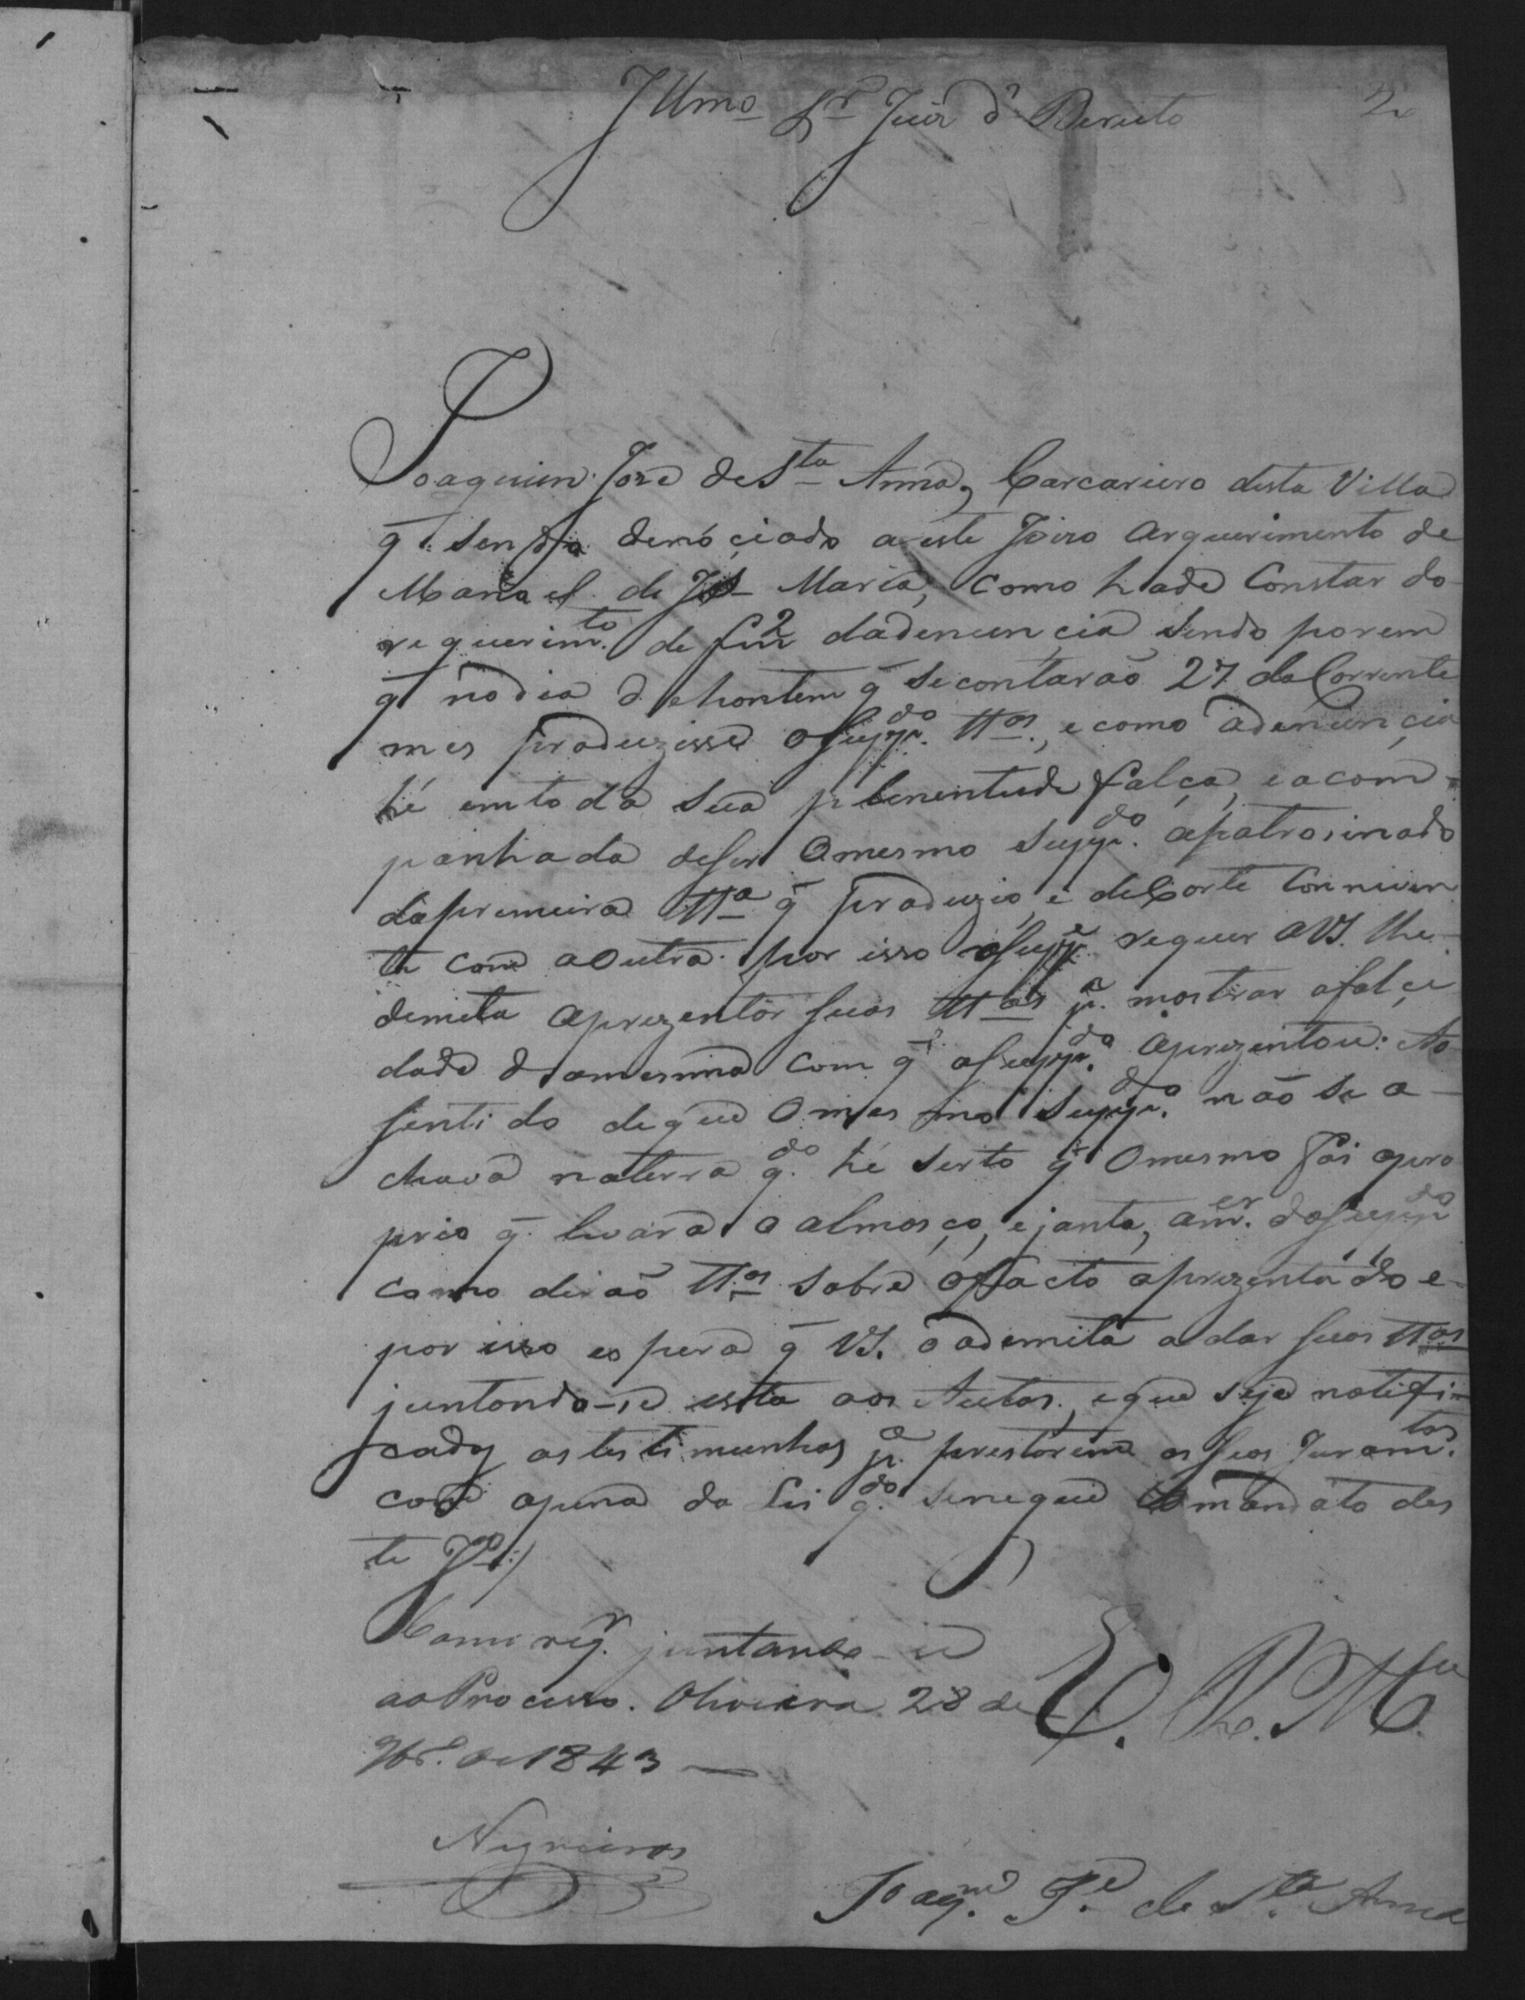 Illmo Sr Juiz d' Dereito
2
Joaquim Joze de Sta Anna, Carcareiro desta Villa
q. sendo denociado a este Joizo arquerimento de
Manoel de Js Maria, como hade Constar do
requerimto. de fm 2 dadenuncia sendo porem
q nodia d. ehontem q secontarão 27 do Corrente
mes produzisse osuppdo. ttas., e como adenuncia
hé emtoda sua plenentude falça, eacom-
panhada deser Omesmo suppdo. apatrosinado
daprimeira tta q produzio, e deCorte Conniven
te com aOutra. por isso osuppe requer aVS. lhe
demita aprezentar suas ttas pa. mostrar afalci
dade d. amesma com q osuppdo. aprezentou. No
sentido deque Omesmo suppdo. não se a-
chava naterra qdo. hé serto q Omesmo foi opro
prio q. levara o almosço, ejanta, amer. dosuppdo
como dirão ttas sobre ofacto aprezentado e
por isso espera q VS. o ademita a dar suas ttas
juntando-se esta aos Autos, eque seja notifi-
cadas as testimunhas pa. prestarem os seos Juramtos.
com apena da Lei qdo. senegue Omandato des
te Jo:/
Como reqr. juntando-se
ao Processo. Oliveira 28 de
9br. de 1843
E. R. Mce
Negreiros
Joaqm. Je. de Sta Anna